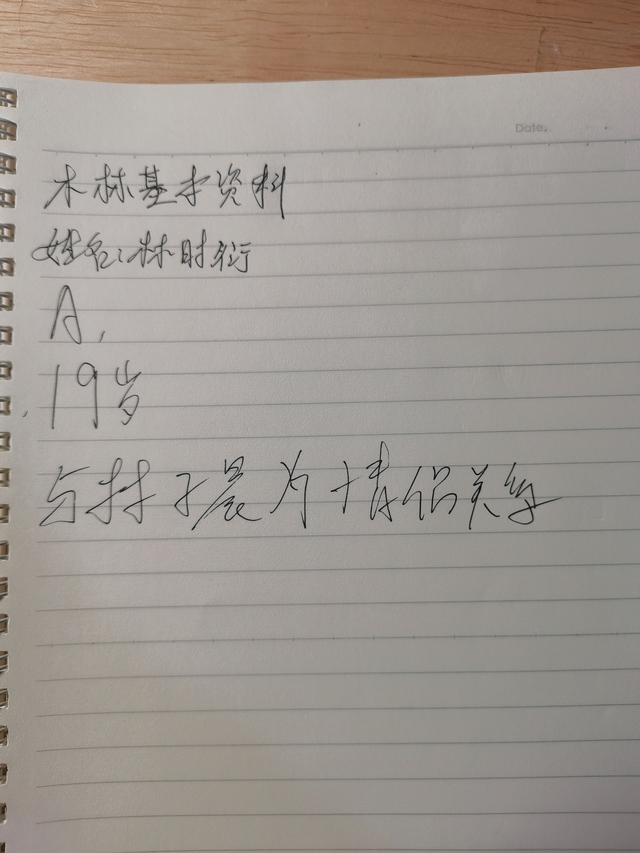 Date.
木林基本资料
姓名:林时衍
A,
19岁
与林子晨为情侣关系